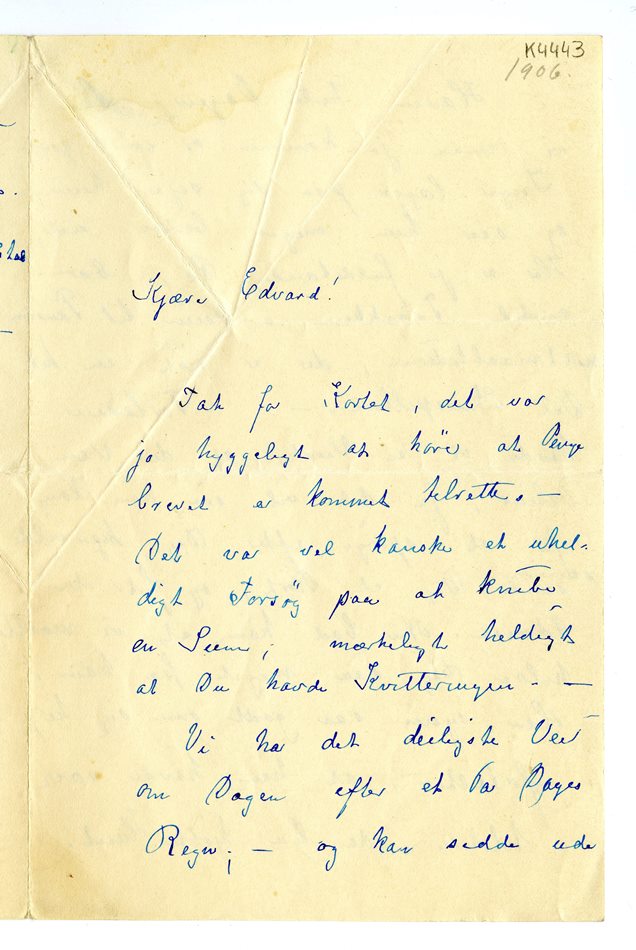 K4443
1906.
Kjære Edvard!
Tak for Kortet, det var
jo hyggeligt at høre at Penge
brevet er kommet tilrette. —
Det var vel kanske et uhel-
digt Forsøg paa at knibe
en Sum; mærkeligt heldigt
at Du havde Kvitteringen. —
Vi har det deiligste Veir
om Dagen efter et Par Dages
Regn; — og kan sidde ude